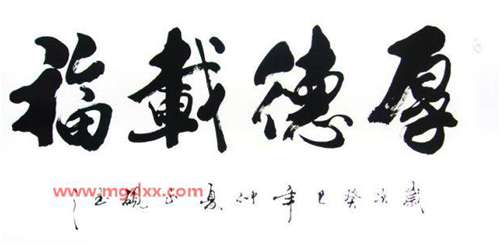 厚德載福
歲次癸巳年仲夏
www.mgdxx.com